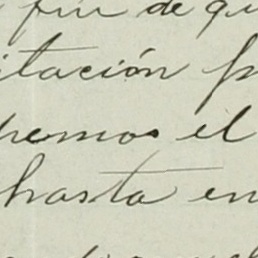 fin de qu
itación p
hemos el
hasta en